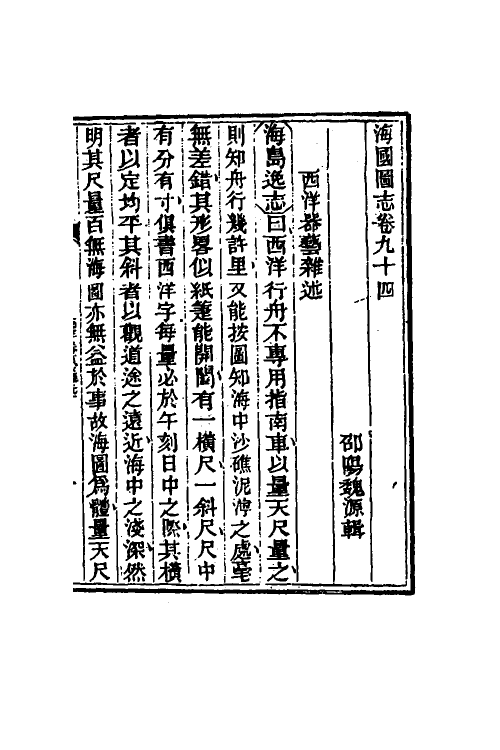 海國圖志卷九十四
邵陽魏源輯
西洋器藝雜述
海島逸志曰西洋行舟不專用指南車以量天尺量之
則知舟行幾許里又能按圖知海中沙礁泥濘之處毫
無差錯其形畧似紙蓬能開闔有一橫尺一斜尺尺中
有分有寸俱書西洋字每量必於午刻日中之際其橫
者以定均平其斜者以觀道途之遠近海中之淺深然
明其尺量百無海圖亦無益於事故海圖爲體量天尺